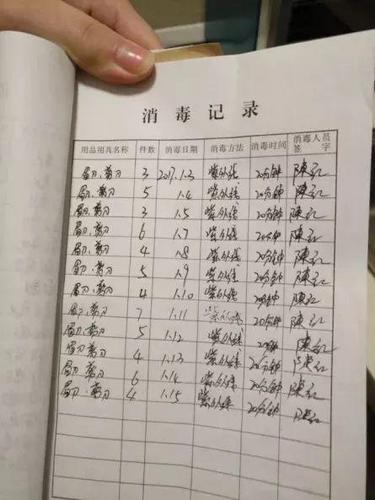 消毒记录
用品用具名称 件数 消毒日期 消毒方法 消毒时间 消毒人员签字
眉刀、剪刀 3 2017.1.3 紫外线 20分钟 陈红
眉刀、剪刀 5 1.4 紫外线 20分钟 陈红
眉刀、剪刀 3 1.5 紫外线 20分钟 陈红
眉刀、剪刀 6 1.7 紫外线 20分钟 陈红
眉刀、剪刀 4 1.8 紫外线 20分钟 陈红
眉刀、剪刀 5 1.9 紫外线 20分钟 陈红
眉刀、剪刀 4 1.10 紫外线 20分钟 陈红
眉刀、剪刀 7 1.11 紫外线 20分钟 陈红
眉刀、剪刀 5 1.12 紫外线 20分钟 陈红
眉刀、剪刀 4 1.13 紫外线 20分钟 陈红
眉刀、剪刀 6 1.14 紫外线 20分钟 陈红
眉刀、剪刀 4 1.15 紫外线 20分钟 陈红